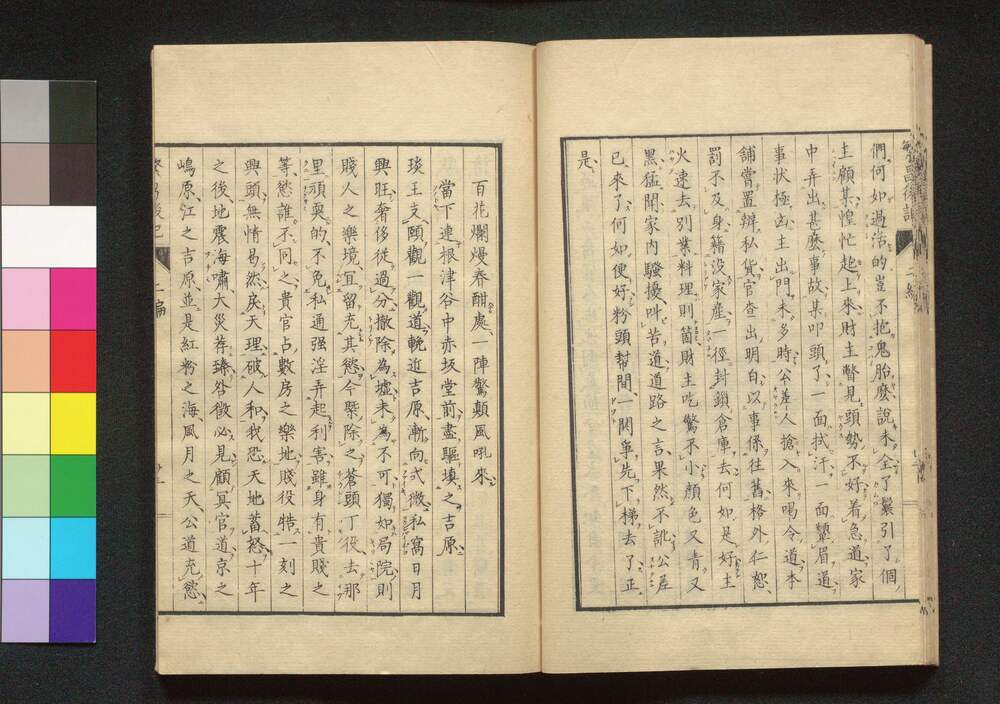 們何如過活的豈不抱鬼胎麼說未全了鬆引了個
主顧某惶忙起上來財主瞥見頭勢不好着急道家
中弄出甚麼事故某叩頭了一面拭汗一面顰眉道
事狀極凶主出門未多時公差人搶入來喝令道本
舖嘗置辨私貨官查出明白以事係往舊格外仁恕
罰不及身籍没家産一徑封鎖倉庫去何如是好主
火速去別業料理則箇財主吃驚不小顏色又青又
黑猛聞家內騷擾叫苦道道路之言果然不訛公差
已來了何如便好粉頭幇閒一鬨爭先下梯去了正
是
百花爛熳春酣處一陣驚顛風吼來
當下連根津谷中赤坂堂前盡驅填之吉原
琰王支頤觀一觀道輓近吉原漸向式微私窩日月
興旺奢侈從過分撤除為墟未為不可獨如局院則
賤人之樂境宜留充其慾今槩除之蒼頭丁役去那
里頑耍的不免私通强淫弄起利害雖身有貴賤之
等慾誰不同之貴官占數房之樂地賤役牿一刻之
興頭無情易然戾天理破人和我恐天地蓄怒十年
之後地震海嘯大災荐臻咎徵必見顧冥官道京之
嶋原江之吉原並是紅粉之海風月之天公道充慾
繁昌後記
二編